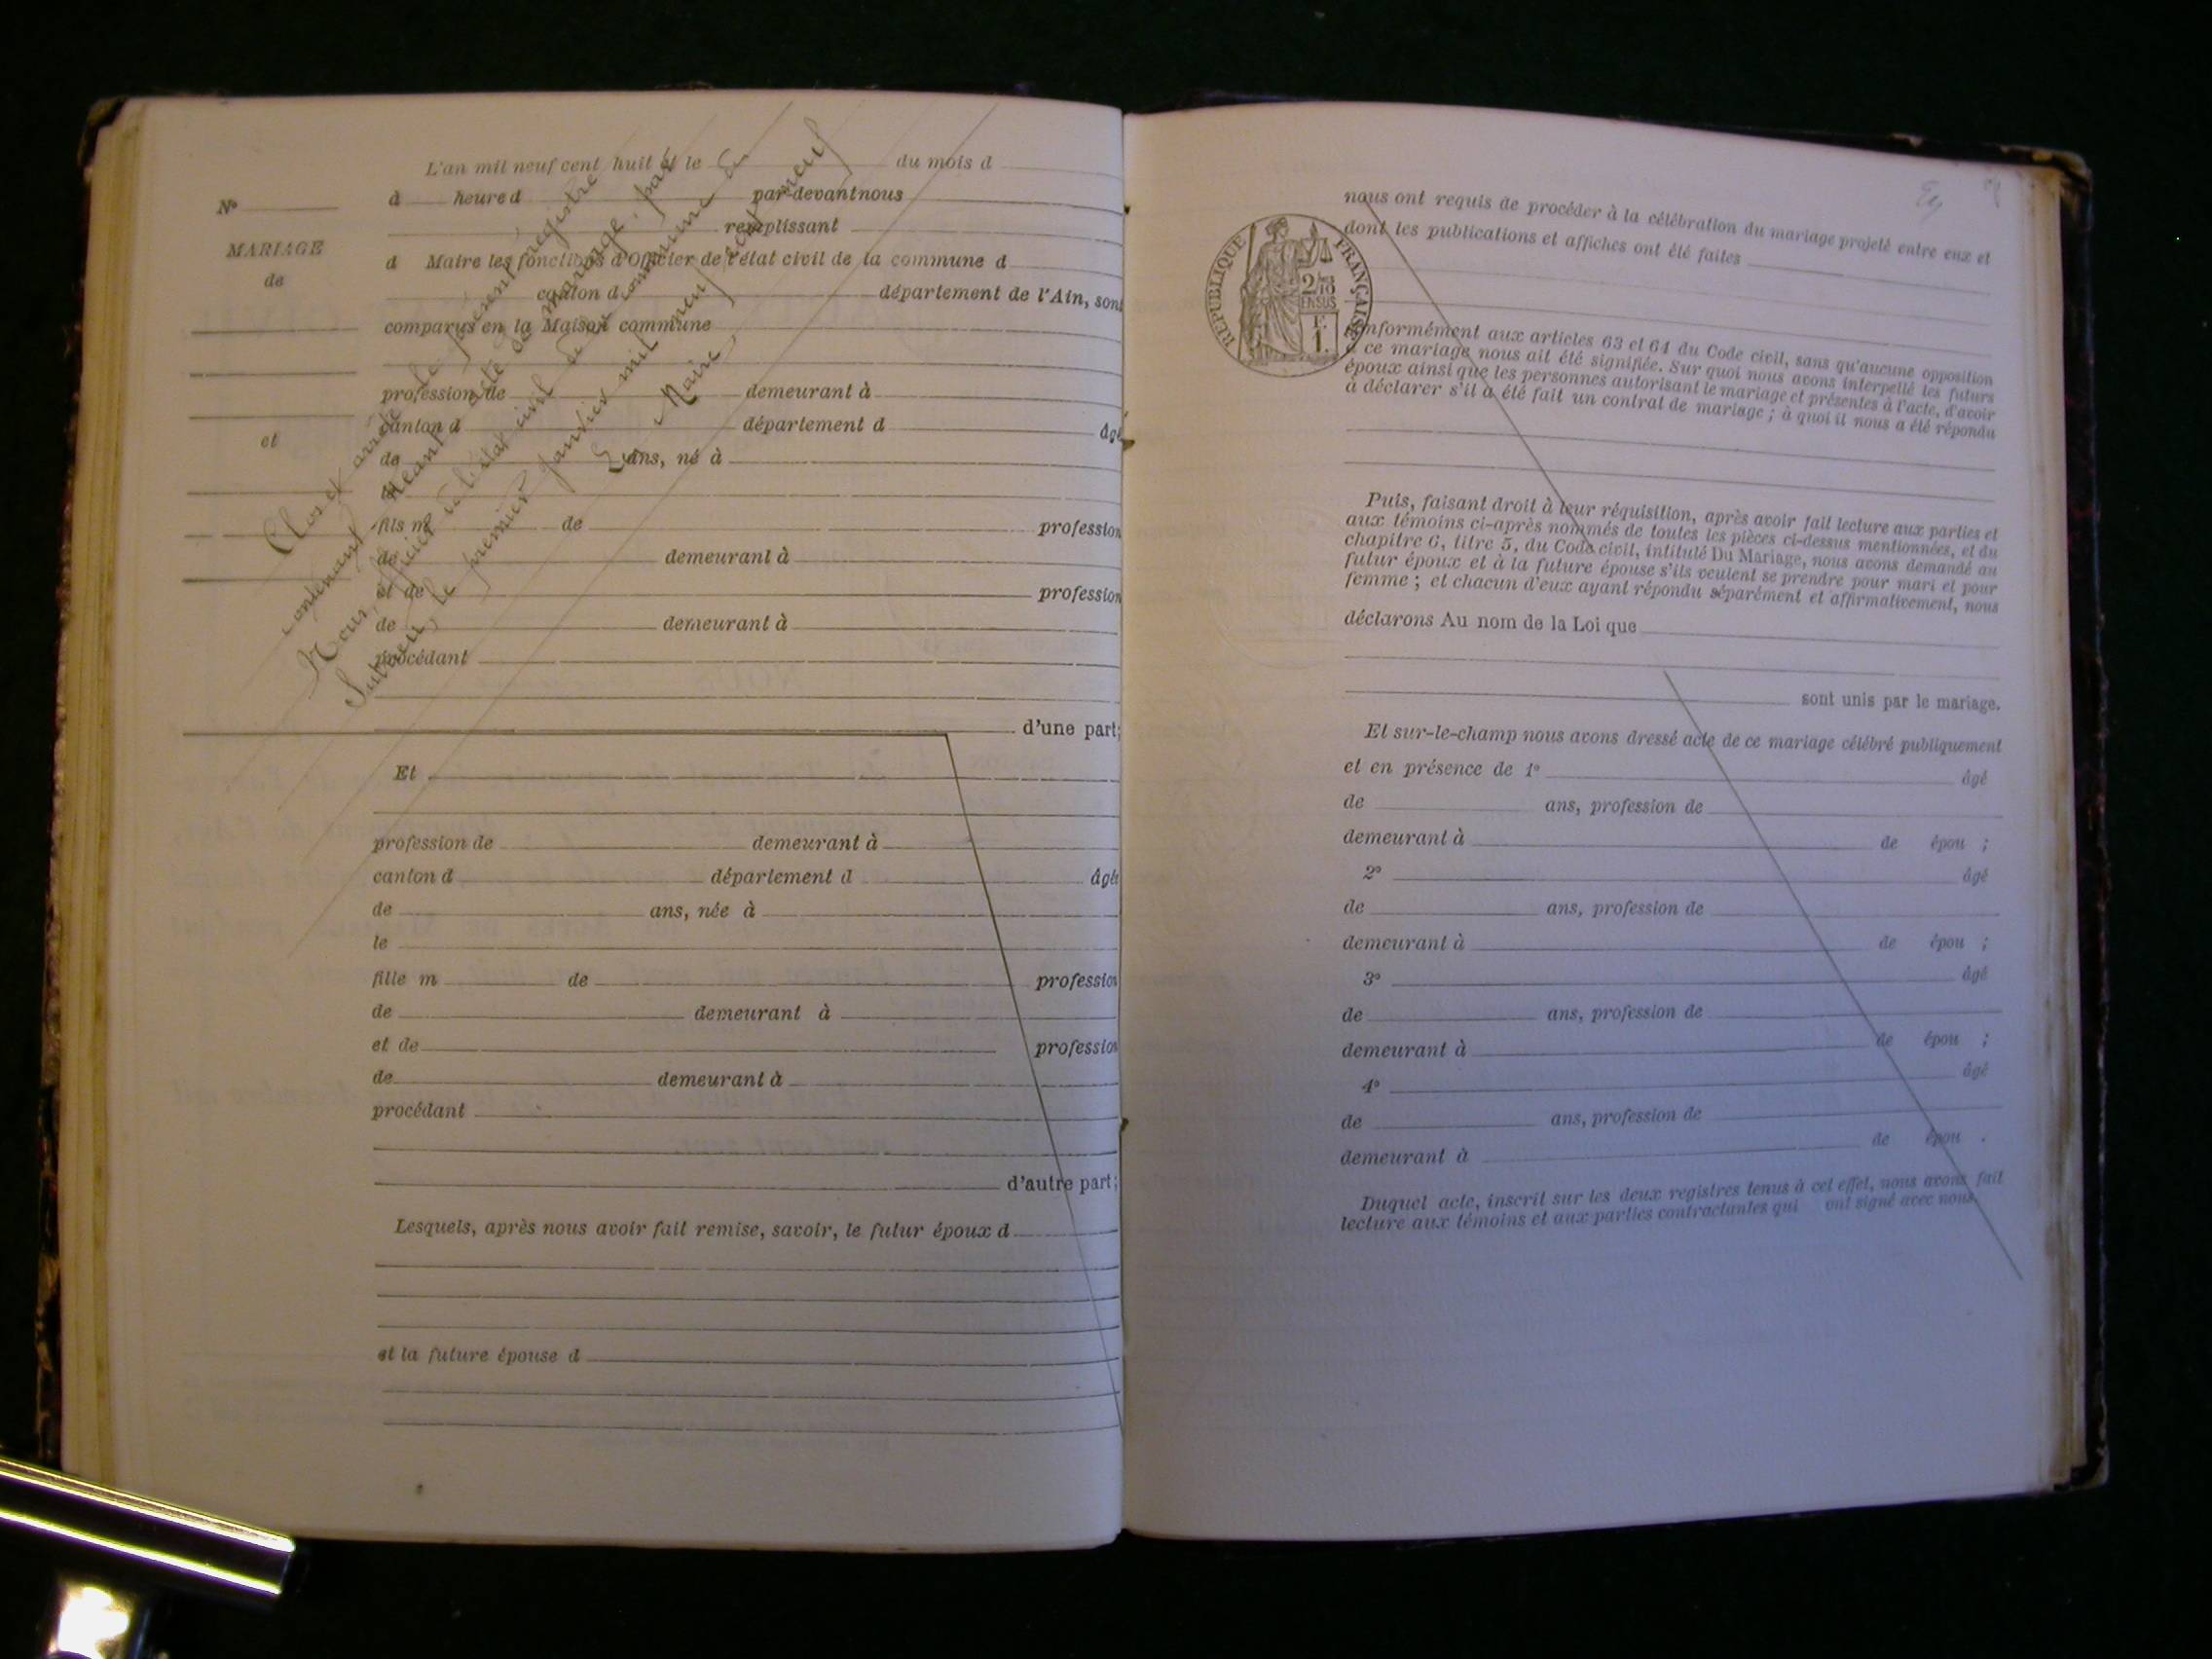 L'an mil neuf cent huit et le du mois d
à heure d par-devant nous
N°
remplissant
MARIAGE
de
d Maire les fonctions d'Officier de l'état civil de la commune d
canton d département de l'Ain, sont
comparus en la Maison commune
profession de demeurant à
canton d département d âgé
et
de ans, né à
le
fils m de profession
de demeurant à
et de profession
de demeurant à
procédant
d'une part;
Clos et arrêté le présent registre
contenant Néant acte de mariage, par
Nous, officier de l'état civil de la commune de
le premier janvier mil neuf cent neuf
Le Maire,
Et
profession de demeurant à
canton d département d âgée
de ans, née à
le
fille m de profession
de demeurant à
et de profession
de demeurant à
procédant
d'autre part;
Lesquels, après nous avoir fait remise, savoir, le futur époux d
et la future épouse d
nous ont requis de procéder à la célébration du mariage projeté entre eux et
dont les publications et affiches ont été faites
RÉPUBLIQUE FRANÇAISE
2/10
EN SUS
F.
1.
conformément aux articles 63 et 64 du Code civil, sans qu'aucune opposition
à ce mariage nous ait été signifiée. Sur quoi nous avons interpellé les futurs
époux ainsi que les personnes autorisant le mariage et présentes à l'acte, d'avoir
à déclarer s'il a été fait un contrat de mariage ; à quoi il nous a été répondu
Puis, faisant droit à leur réquisition, après avoir fait lecture aux parties et
aux témoins ci-après nommés de toutes les pièces ci-dessus mentionnées, et du
chapitre 6, titre 5, du Code civil, intitulé Du Mariage, nous avons demandé au
futur époux et à la future épouse s'ils veulent se prendre pour mari et pour
femme ; et chacun d'eux ayant répondu séparément et affirmativement, nous
déclarons Au nom de la Loi que
sont unis par le mariage.
Et sur-le-champ nous avons dressé acte de ce mariage célébré publiquement
et en présence de 1° âgé
de ans, profession de
demeurant à de épou ;
2° âgé
de ans, profession de
demeurant à de épou ;
3° âgé
de ans, profession de
demeurant à de épou ;
4° âgé
de ans, profession de
demeurant à de épou .
Duquel acte, inscrit sur les deux registres tenus à cet effet, nous avons fait
lecture aux témoins et aux parties contractantes qui ont signé avec nous.